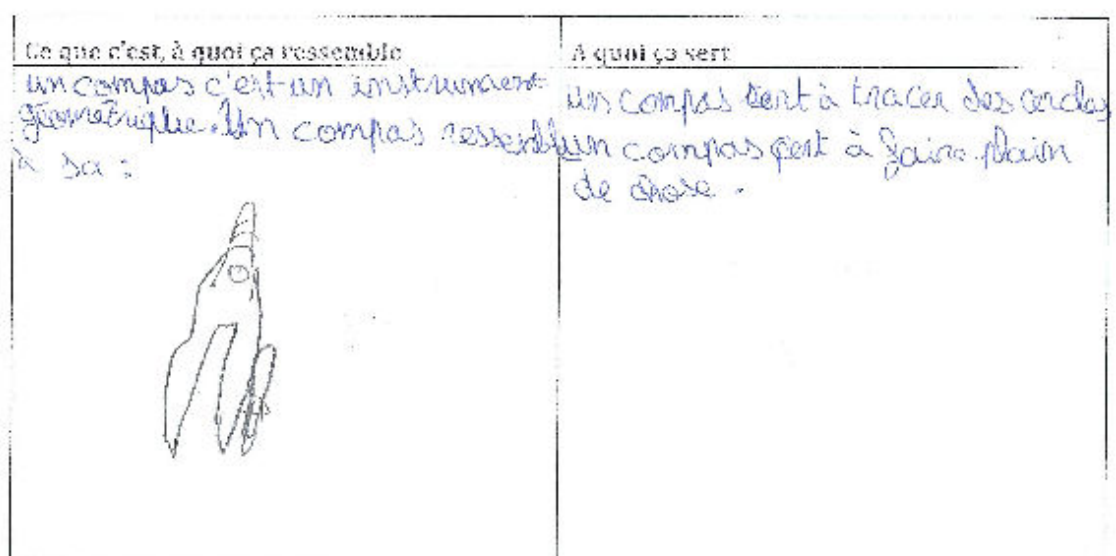 Ce que c'est, à quoi ça ressemble
un compas c'est un instrument
géometrique. Un compas ressemble
à sa :
A quoi ça sert
un compas sert à tracer des cercles
un compas sert à faire plain
de chose .